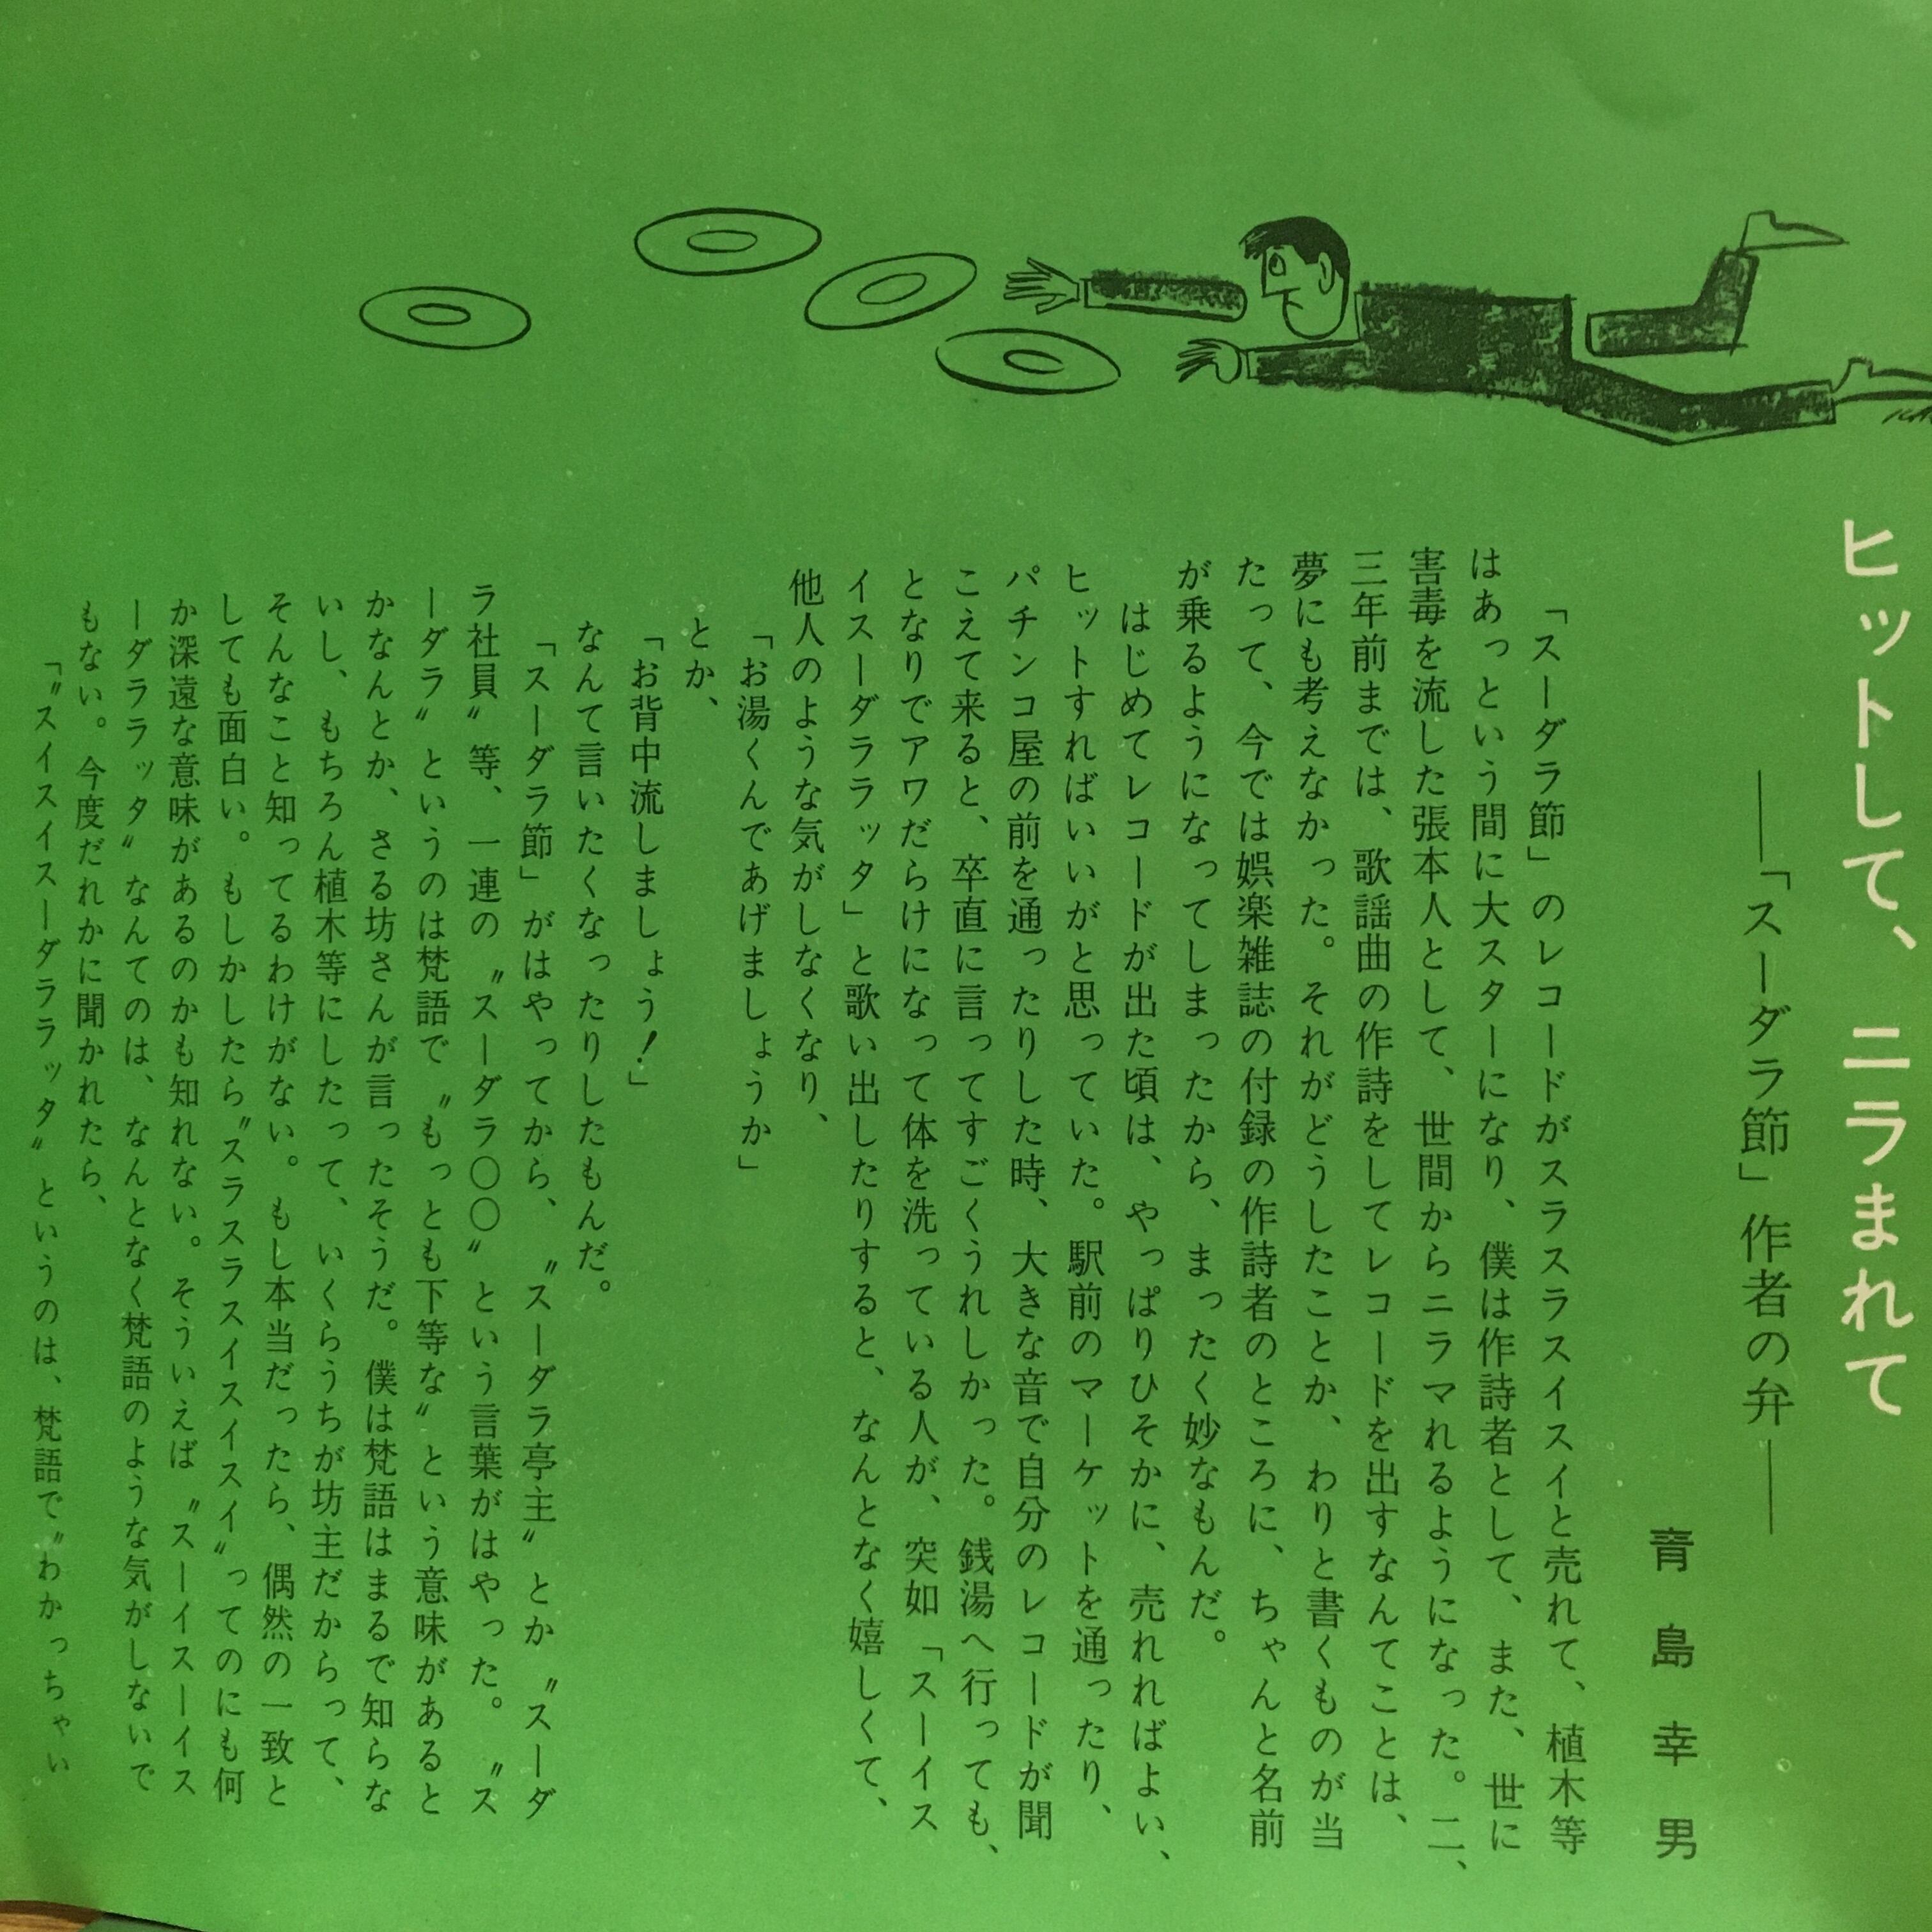 ヒットして、ニラまれて
――「スーダラ節」作者の弁――
青島幸男
「スーダラ節」のレコードがスラスラスイスイと売れて、植木等
はあっという間に大スターになり、僕は作詩者として、また、世に
害毒を流した張本人として、世間からニラマれるようになった。二、
三年前までは、歌謡曲の作詩をしてレコードを出すなんてことは、
夢にも考えなかった。それがどうしたことか、わりと書くものが当
たって、今では娯楽雑誌の付録の作詩者のところに、ちゃんと名前
が乗るようになってしまったから、まったく妙なもんだ。
はじめてレコードが出た頃は、やっぱりひそかに、売れればよい、
ヒットすればいいがと思っていた。駅前のマーケットを通ったり、
パチンコ屋の前を通ったりした時、大きな音で自分のレコードが聞
こえて来ると、卒直に言ってすごくうれしかった。銭湯へ行っても、
となりでアワだらけになって体を洗っている人が、突如「スーイス
イスーダララッタ」と歌い出したりすると、なんとなく嬉しくて、
他人のような気がしなくなり、
「お湯くんであげましょうか」
とか、
「お背中流しましょう！」
なんて言いたくなったりしたもんだ。
「スーダラ節」がはやってから、〝スーダラ亭主〟とか〝スーダ
ラ社員〟等、一連の〝スーダラ〇〇〟という言葉がはやった。〝ス
ーダラ〟というのは梵語で〝もっとも下等な〟という意味があると
かなんとか、さる坊さんが言ったそうだ。僕は梵語はまるで知らな
いし、もちろん植木等にしたって、いくらうちが坊主だからって、
そんなこと知ってるわけがない。もし本当だったら、偶然の一致と
しても面白い。もしかしたら〝スラスラスイスイスイ〟ってのにも何
か深遠な意味があるのかも知れない。そういえば〝スーイスーイス
ーダララッタ〟なんてのは、なんとなく梵語のような気がしないで
もない。今度だれかに聞かれたら、
「〝スイスイスーダララッタ〟というのは、梵語で〝わかっちゃい